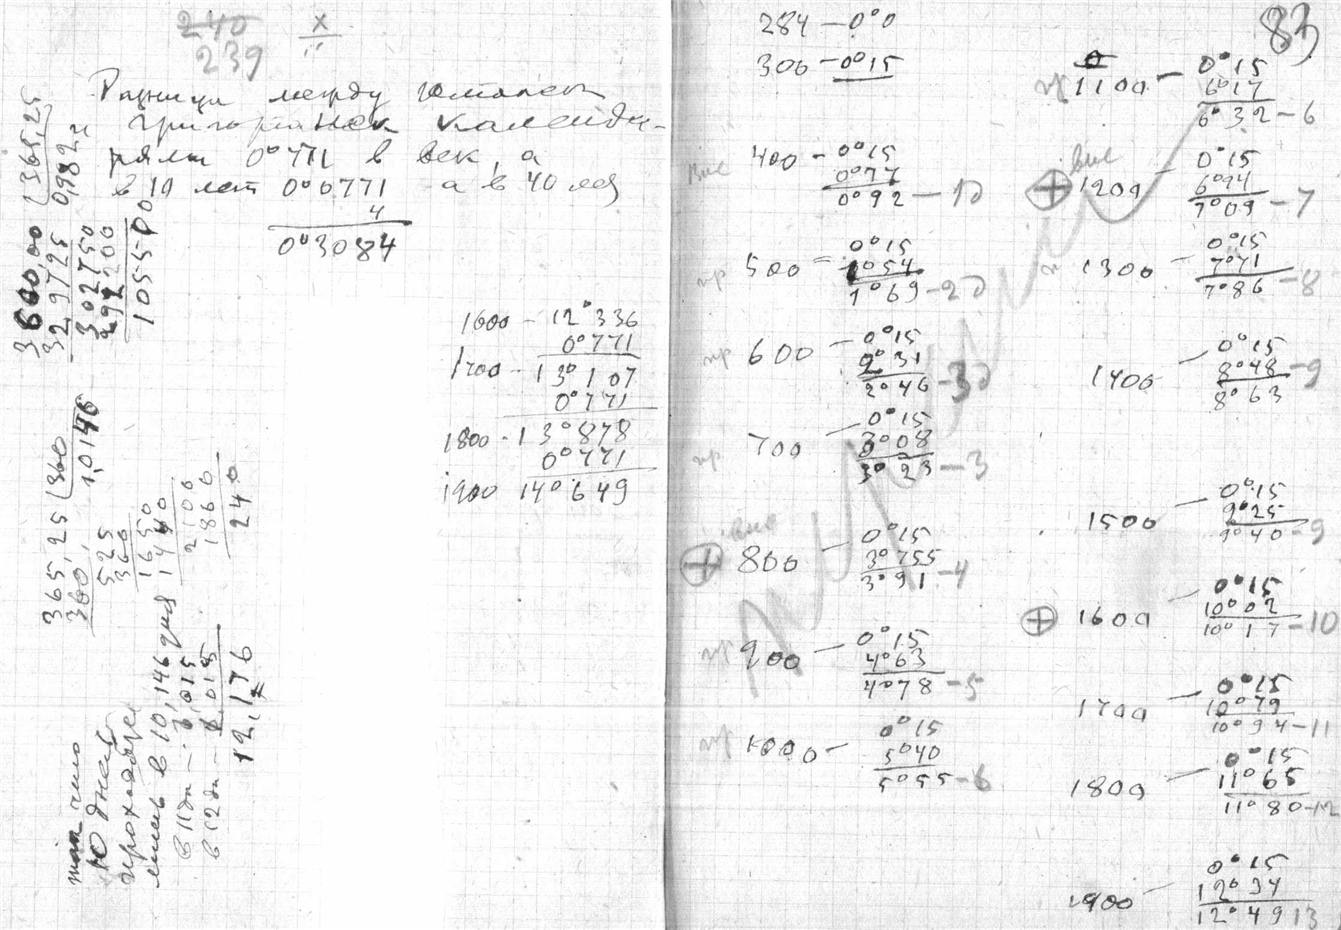 240
239
x
Разница между юлианск
григорианск календа-
рями 0°771 в век, а
в 10 лет 0°0771 а в 40 лет
4
0°3084
1600 - 12°336
0°771
1700 - 13°107
0°771
1800 - 13°878
0°771
1900 14°649
365,25
329725
302750
292200
105500
365,25 360
360
1,0146
525
360
1650
1440
2100
1860
240
число
10 дней
в 10,146 дня
в 11 дн - 1,015
в 12 дн - 1,015
12,176
83
284 - 0°0
300 - 0°15
вис 400 - 0°15
0°77
0°92 - 1д
пр 500 - 0°15
1°54
1°69 - 2д
пр 600 - 0°15
2°31
2°46 - 3д
пр 700 - 0°15
3°08
3°23 - 3
вис
800 - 0°15
3°755
3°91 - 4
пр 900 - 0°15
4°63
4°78 - 5
пр 1000 - 0°15
5°40
5°55 - 6
пр 1100 - 0°15
6°17
6°32 - 6
вис
1200 - 0°15
6°94
7°09 - 7
1300 - 0°15
7°71
7°86 - 8
1400 - 0°15
8°48
8°63 - 9
1500 - 0°15
9°25
9°40 - 9
1600 - 0°15
10°02
10°17 - 10
1700 - 0°15
10°79
10°94 - 11
1800 - 0°15
11°65
11°80 - 12
1900 - 0°15
12°34
12°49 13